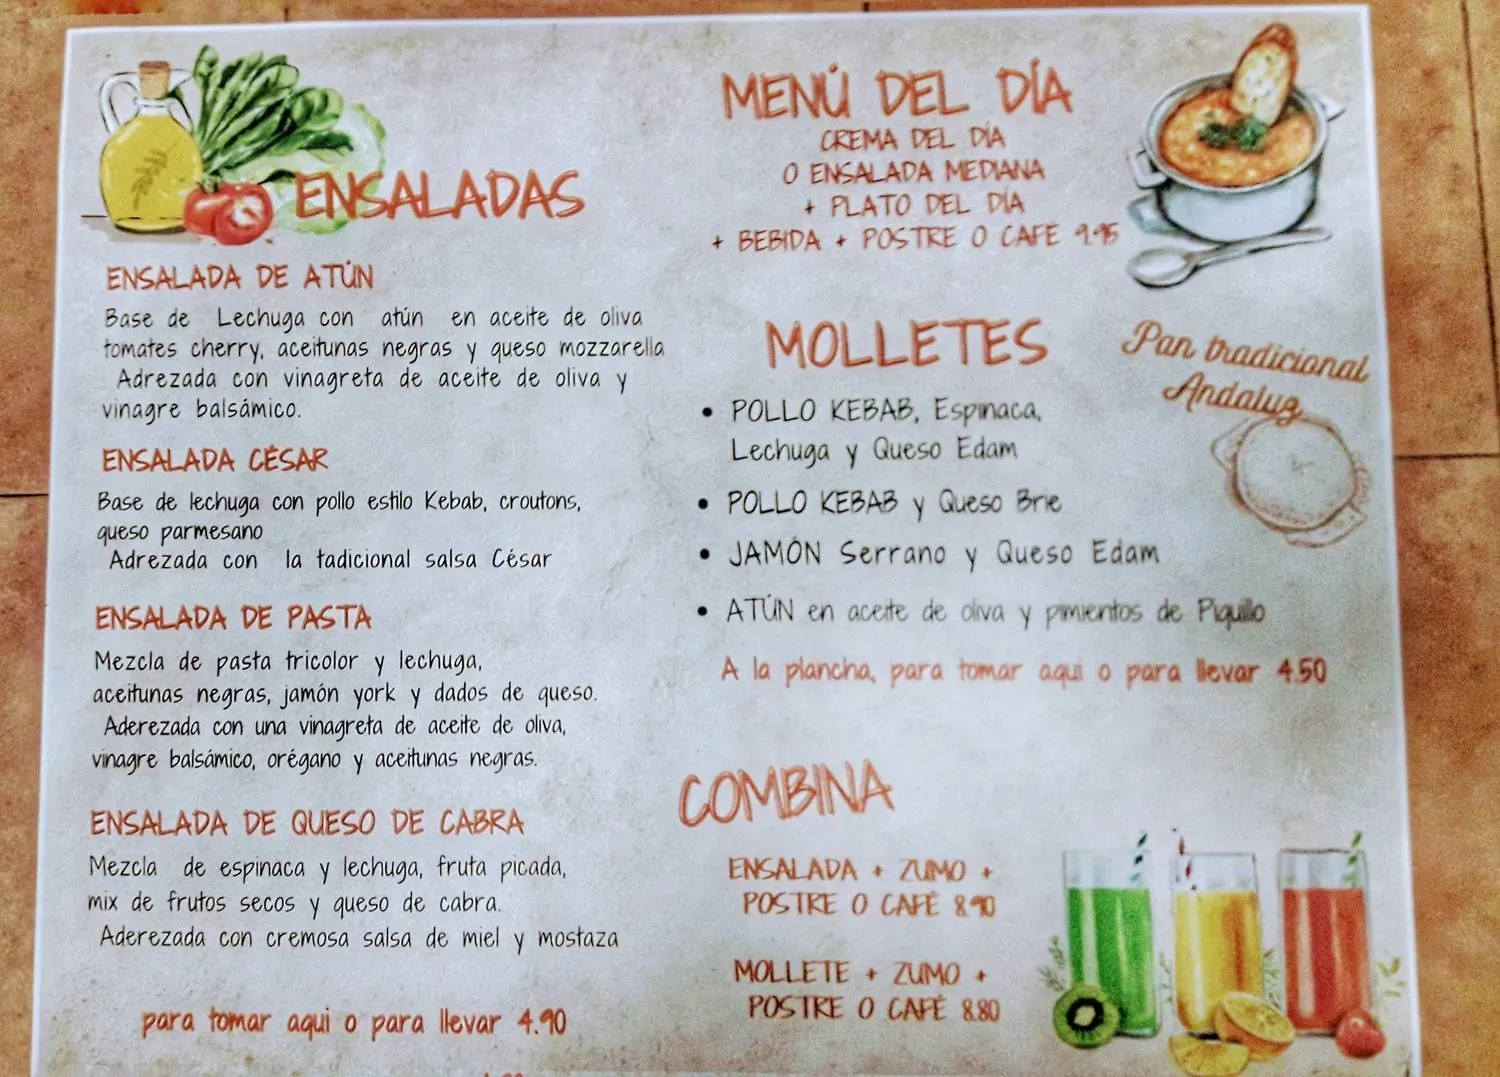 ENSALADAS
ENSALADA DE ATÚN
Base de Lechuga con atún en aceite de oliva
tomates cherry, aceitunas negras y queso mozzarella
Adrezada con vinagreta de aceite de oliva y
vinagre balsámico.
ENSALADA CÉSAR
Base de lechuga con pollo estilo Kebab, croutons,
queso parmesano
Adrezada con la tadicional salsa César
ENSALADA DE PASTA
Mezcla de pasta tricolor y lechuga,
aceitunas negras, jamón york y dados de queso.
Aderezada con una vinagreta de aceite de oliva,
vinagre balsámico, orégano y aceitunas negras.
ENSALADA DE QUESO DE CABRA
Mezcla de espinaca y lechuga, fruta picada,
mix de frutos secos y queso de cabra.
Aderezada con cremosa salsa de miel y mostaza
para tomar aqui o para llevar 4.90
MENÚ DEL DÍA
CREMA DEL DÍA
O ENSALADA MEDIANA
+ PLATO DEL DÍA
+ BEBIDA + POSTRE O CAFÉ 9.95
MOLLETES
Pan tradicional
Andaluz
• POLLO KEBAB, Espinaca,
Lechuga y Queso Edam
• POLLO KEBAB y Queso Brie
• JAMÓN Serrano y Queso Edam
• ATÚN en aceite de oliva y pimientos de Piquillo
A la plancha, para tomar aqui o para llevar 4.50
COMBINA
ENSALADA + ZUMO +
POSTRE O CAFÉ 8.90
MOLLETE + ZUMO +
POSTRE O CAFÉ 8.80